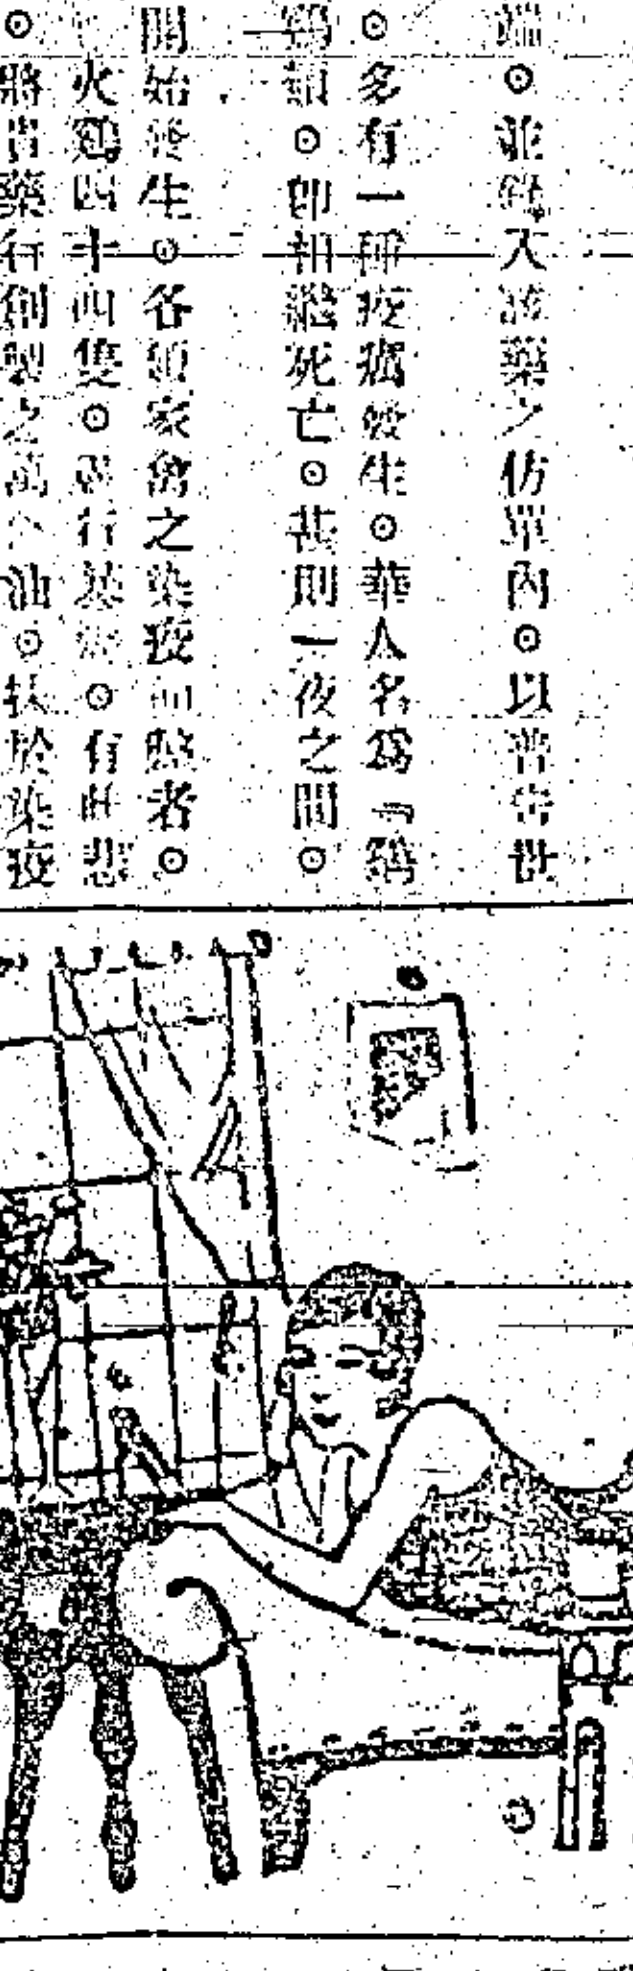 端⊙並登入該藥之仿單內⊙以普告世
⊙多有一種疫癘發生⊙華人名爲『鷄
鷄瘟⊙卽相繼死亡⊙甚則一夜之間⊙
開始發生⊙各養家禽之染疫而斃者⊙
火鷄四十四隻⊙舉行⊙有此悲
⊙將貴藥行創製之萬八油⊙扶於染疫